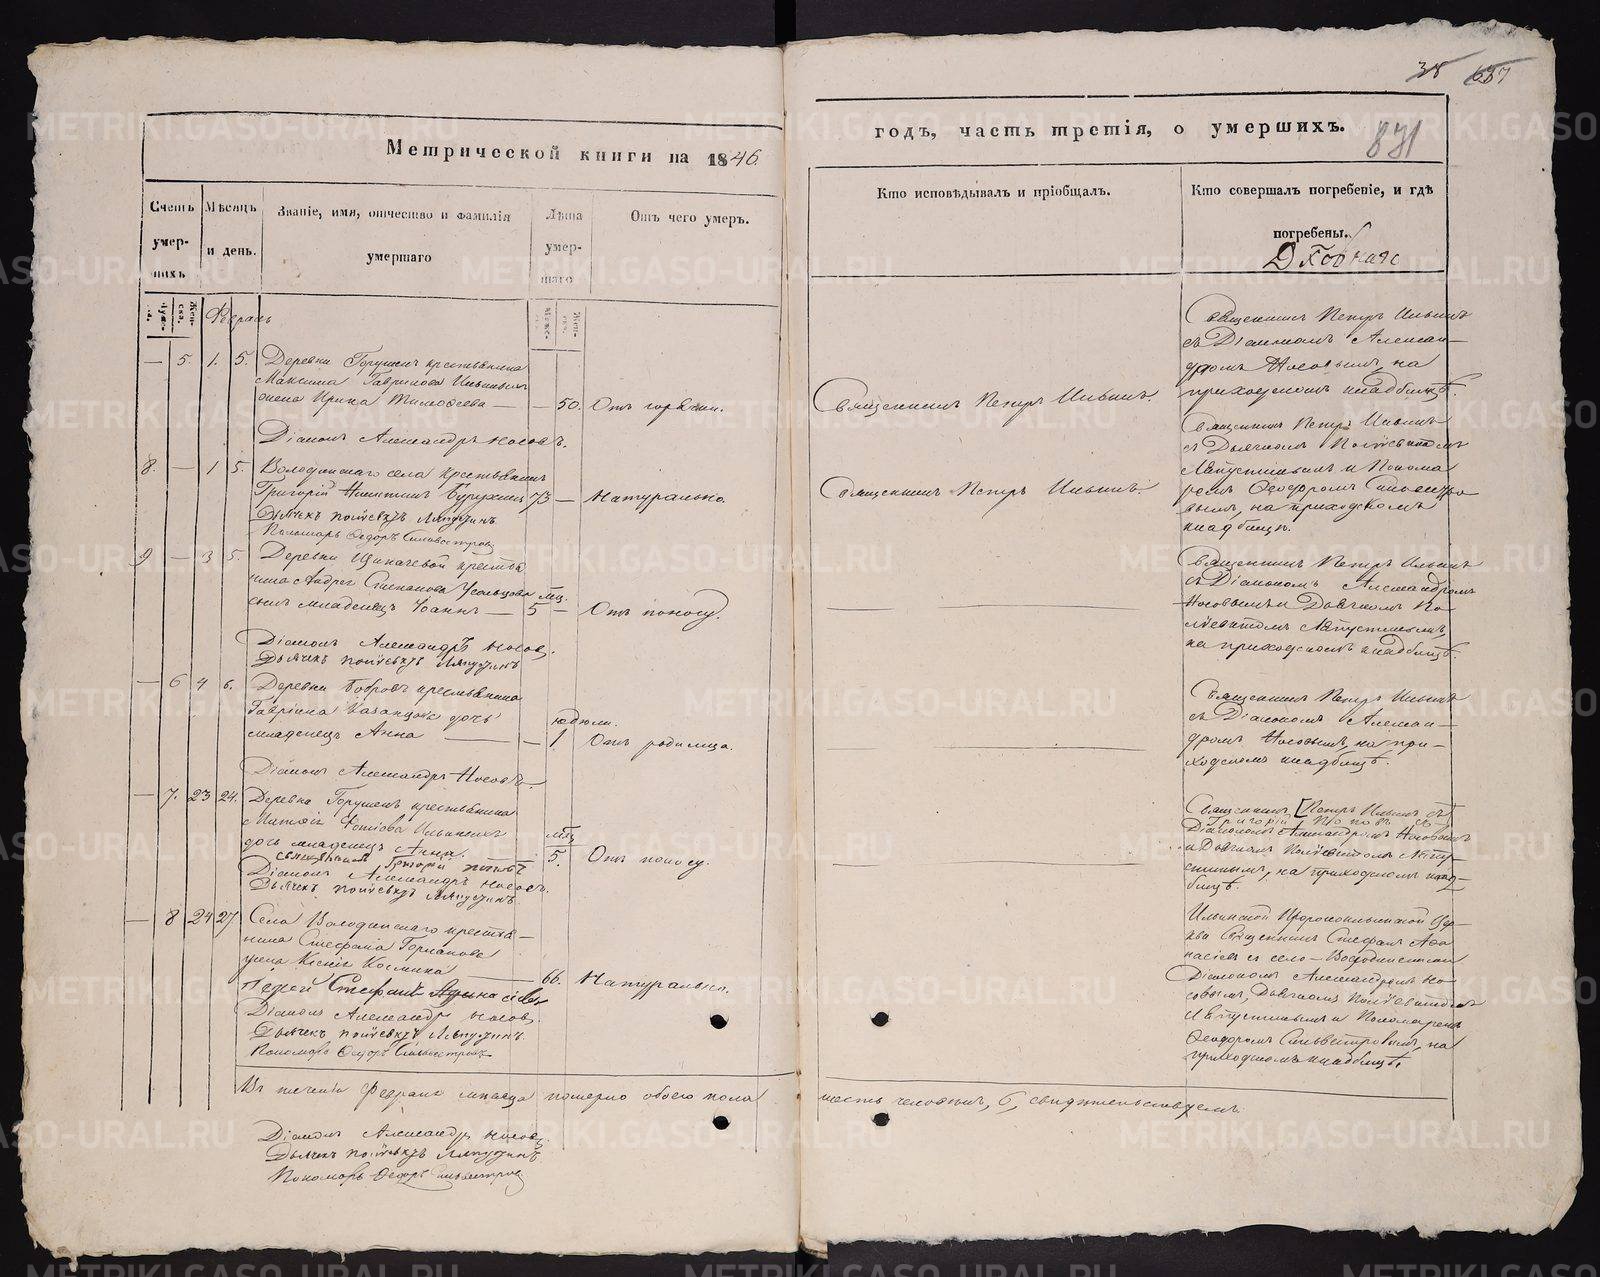 38 687
Метрической книги на 1846
годъ, часть третія, о умершихъ.
871
Счетъ умер-шихъ
Мѣсяцъ и день.
Званіе, имя, отчество и фамилія умершаго
Лѣта умер-шаго
Отъ чего умеръ.
Кто исповѣдывалъ и пріобщалъ.
Кто совершалъ погребеніе, и гдѣ погребены.
Муже-
Жен-ска.
Февраль
— 5. 1. 5. Деревни крестьянина
Максима Гаврилова
жена Ирина Тимоѳеева — — 50. Отъ горячки.
Священникъ Петръ Ильинъ.
Священникъ Петръ Ильинъ
съ Діакономъ Алексан-
дромъ Носовымъ, на
приходскомъ кладбищѣ.
Діаконъ Александръ Носовъ.
8. — 1 5. Володинскаго села крестьянинъ
Григорій Никитинъ 73 — Натурально.
Священникъ Петръ Ильинъ.
Священникъ Петръ Ильинъ
съ Дьячкомъ Полиевктомъ
Ляпустинымъ и Понома
ремъ Ѳеодоромъ Сильвестро
вымъ, на приходскомъ
кладбищѣ.
Дьячекъ Полиевктъ Ляпустинъ
Пономарь Ѳедоръ Сильвестровъ
9 — 3 5. Деревни крестья
нина Андрея Степанова Усольцова мц.
сынъ младенецъ Іоаннъ — 5 — Отъ поносу.
Священникъ Петръ Ильинъ
съ Діакономъ Александромъ
Носовымъ и Дьячкомъ По-
лиевктомъ Ляпустинымъ,
на приходскомъ кладбищѣ.
Діаконъ Александръ Носовъ.
Дьячекъ Полиевктъ Ляпустинъ
— 6 4 6. Деревни Бобровъ крестьянина
Гавріила Казанцова дочь
младенецъ Анна — — 1. Отъ родимца.
Священникъ Петръ Ильинъ
съ Діакономъ Алексан-
дромъ Носовымъ, на при-
ходскомъ кладбищѣ.
Діаконъ Александръ Носовъ.
— 7. 23 24. Деревни крестьянина
мц
дочь младенецъ Анна. 5. Отъ поносу.
Священникъ Григорій Поповъ
Діаконъ Александръ Носовъ.
Дьячекъ Полиевктъ Ляпустинъ.
Священникъ [Петръ Ильинъ съ
Григорій Поповъ съ
Діакономъ Александромъ Носовымъ
и Дьячкомъ Полиевктомъ Ляпу-
стинымъ, на приходскомъ клад-
бищѣ.
— 8 24 27 Села Володинскаго крестья-
нина Стефана
жена Космина — 66. Натурально.
Іерей Стефанъ Афанасіевъ
Діаконъ Александръ Носовъ.
Дьячекъ Полиевктъ Ляпустинъ.
Пономарь Ѳедоръ Сильвестровъ
Ильинской Пророкоильинской Цер-
кви Священникъ Стефанъ Афа
насіевъ съ село-Володинскимъ
Діакономъ Александромъ Но-
совымъ, Дьячкомъ Полиевктомъ
Ляпустинымъ и Пономаремъ
Ѳеодоромъ Сильвестровымъ, на
приходскомъ кладбищѣ.
Въ теченіи Февраля мѣсяца померло обоего пола шесть человѣкъ, 6, свидѣтельствуемъ.
Діаконъ Александръ Носовъ.
Дьячекъ Полиевктъ Ляпустинъ
Пономарь Ѳедоръ Сильвестровъ
METRIKI.GASO-URAL.RU